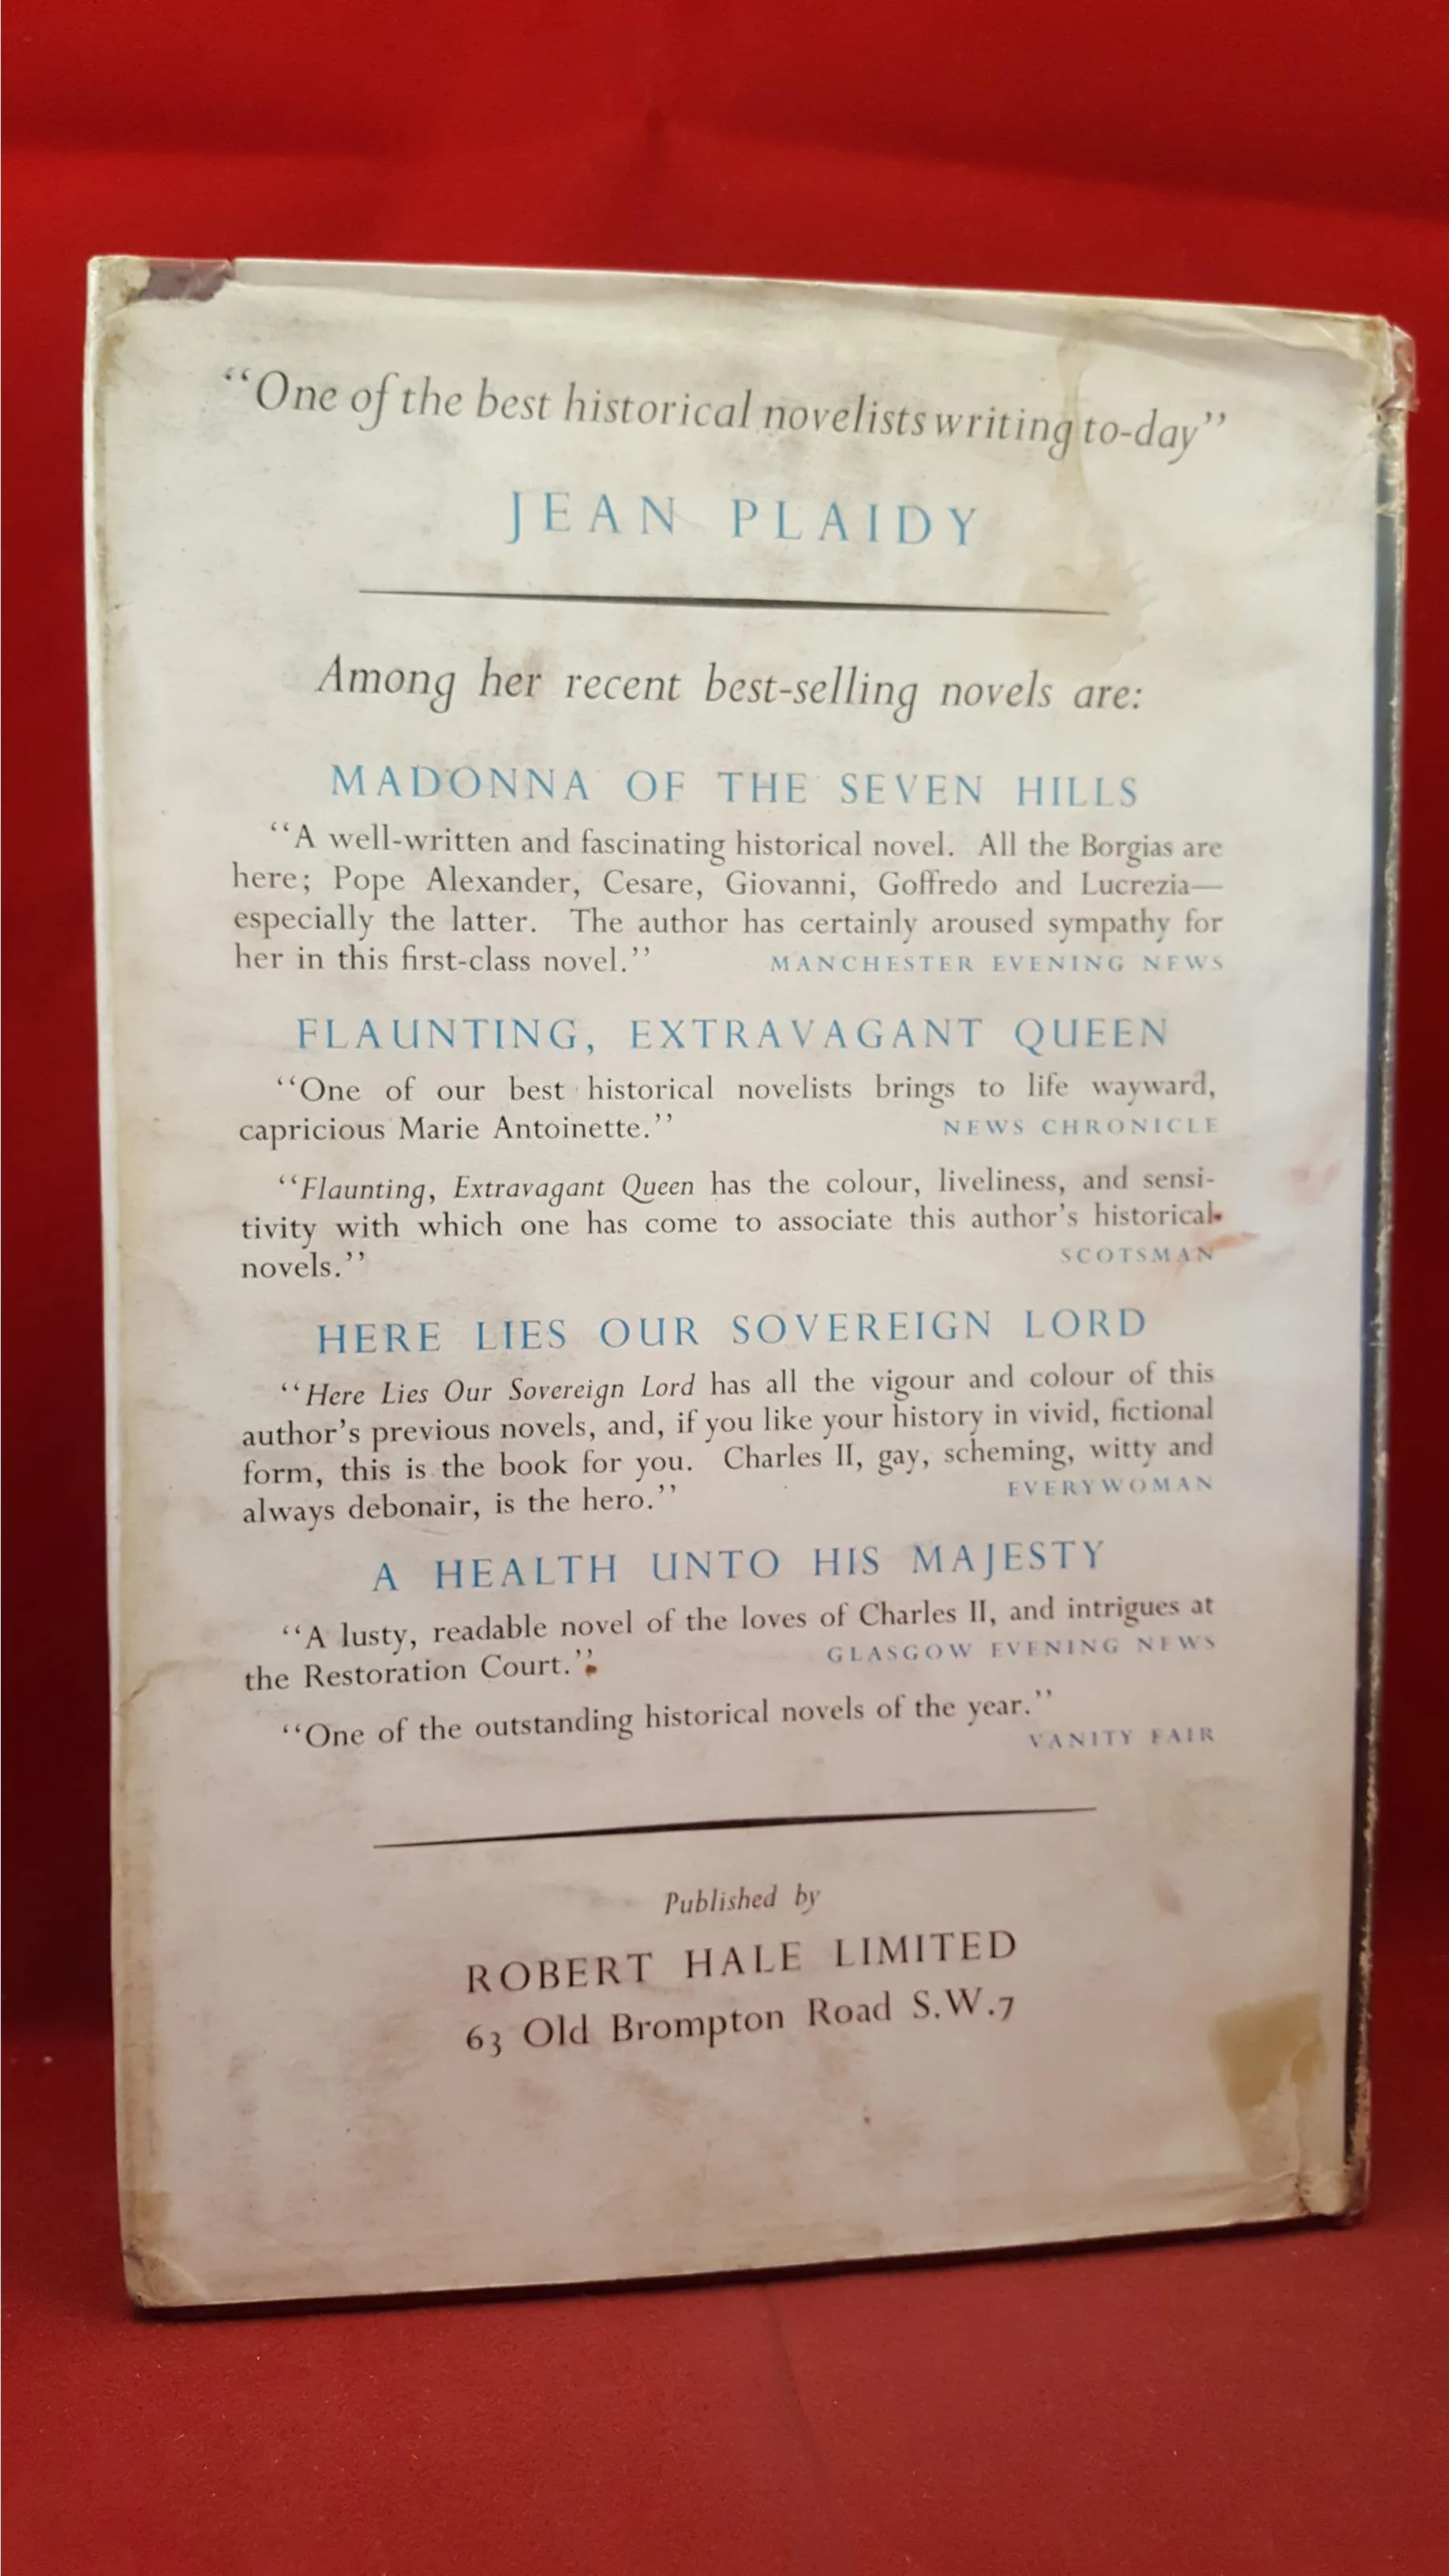 “One of the best historical novelists writing to-day”
JEAN PLAIDY
Among her recent best-selling novels are:
MADONNA OF THE SEVEN HILLS
“A well-written and fascinating historical novel. All the Borgias are
here; Pope Alexander, Cesare, Giovanni, Goffredo and Lucrezia—
especially the latter. The author has certainly aroused sympathy for
her in this first-class novel.” MANCHESTER EVENING NEWS
FLAUNTING, EXTRAVAGANT QUEEN
“One of our best historical novelists brings to life wayward,
capricious Marie Antoinette.” NEWS CHRONICLE
“Flaunting, Extravagant Queen has the colour, liveliness, and sensi-
tivity with which one has come to associate this author’s historical
novels.” SCOTSMAN
HERE LIES OUR SOVEREIGN LORD
“Here Lies Our Sovereign Lord has all the vigour and colour of this
author’s previous novels, and, if you like your history in vivid, fictional
form, this is the book for you. Charles II, gay, scheming, witty and
always debonair, is the hero.” EVERYWOMAN
A HEALTH UNTO HIS MAJESTY
“A lusty, readable novel of the loves of Charles II, and intrigues at
the Restoration Court.” GLASGOW EVENING NEWS
“One of the outstanding historical novels of the year.”
VANITY FAIR
Published by
ROBERT HALE LIMITED
63 Old Brompton Road S.W.7